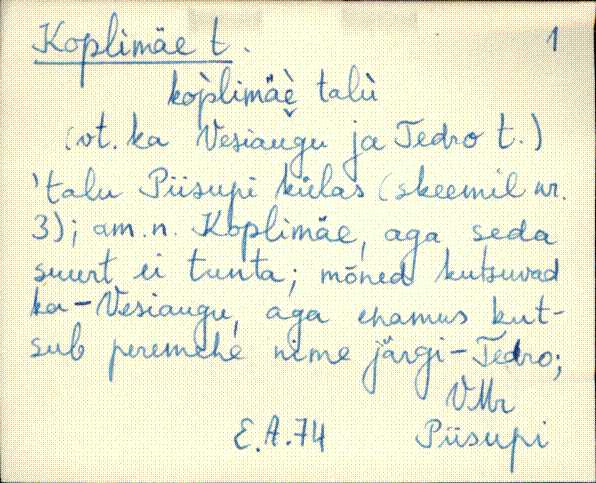 Koplimäe t. 1
kop̀limäè̬ talù
(vt. ka Vesiaugu ja Tedro t.)
'talu Piisupi külas (skeemil nr.
3); am. n. Koplimäe, aga seda
suurt ei tunta; mõned kutsuvad
ka - Vesiaugu, aga enamus kut-
sub peremehe nime järgi - Tedro;
VMr
E.A.74 Piisupi